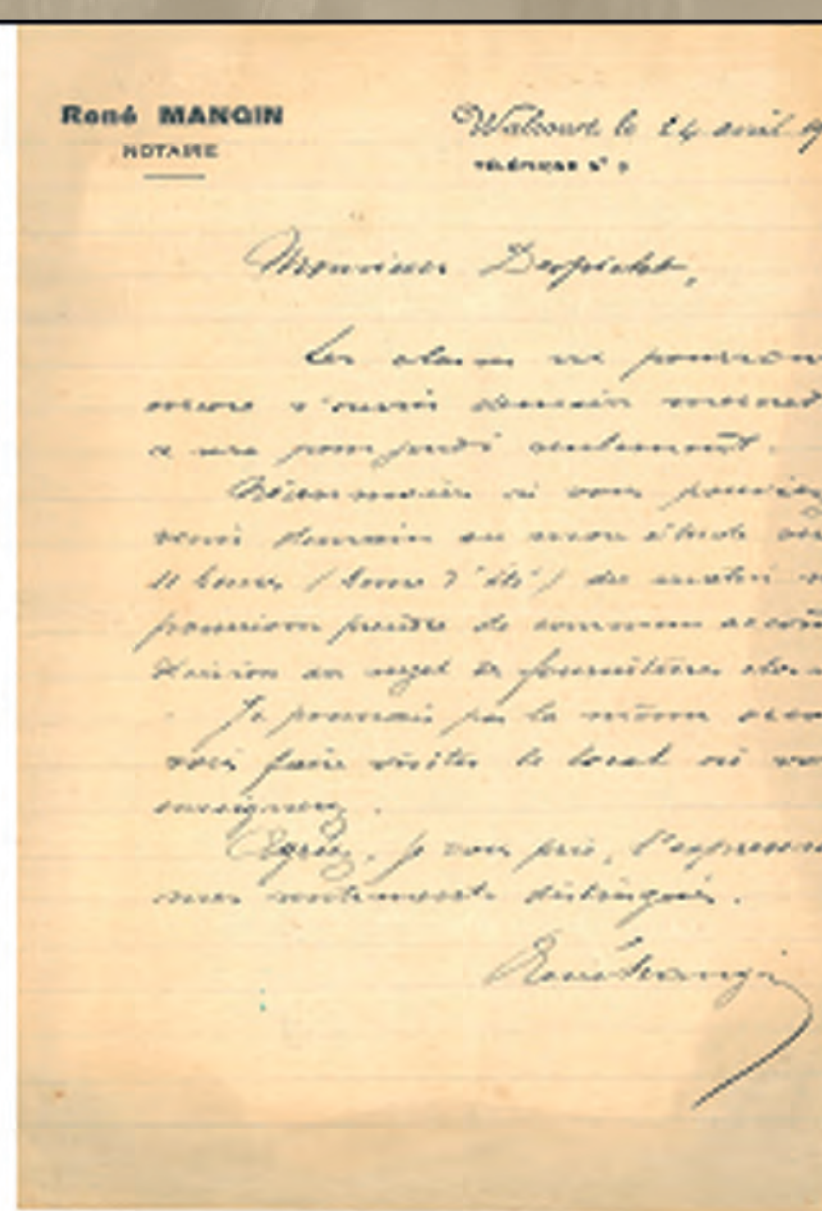 René MANGIN
NOTAIRE
Walcourt le 24 avril 19
TÉLÉPHONE N° 9
Monsieur
Les classes ne pourron
encore s'ouvrir demain
ce sera pour jeudi seulement.
Néanmoins si vous pouviez
venir demain en mon étude
11 heures (heure d'été) du matin
pourrions prendre de commun accord
décision au sujet de fournitures
Je pourrais par la même
vous faire visiter le local où vo
enseignerez.
Agréez, je vous prie, l'expression
mes sentiments distingués.
René Mangin